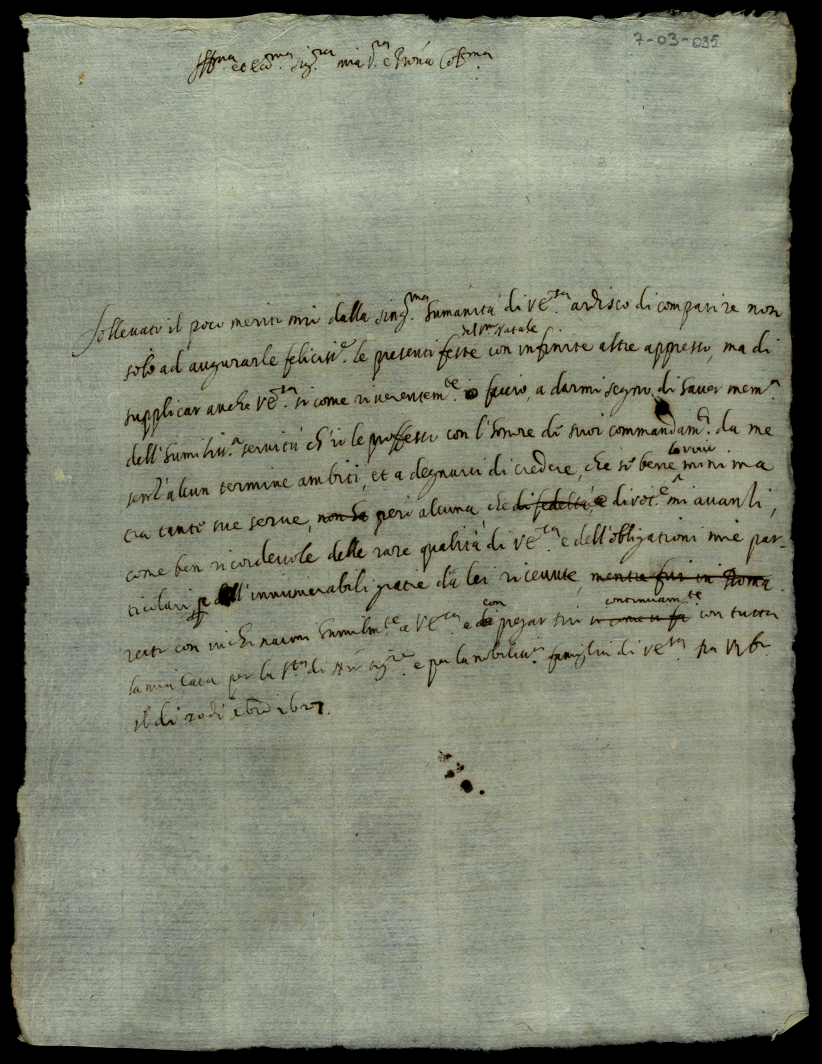 7-03-035
Ill.ma et Ecc.ma Sig.ra mia S.ra e Prona Col.ma
Sollevato il poco merito mio dalla sing.ma humanità di VE.za ardisco di comparire non
del S.mo Natale
solo ad augurarle felicis.e le presenti feste con infinite altre appresso, ma di
supplicar anche VE.za si come riverentem.te faccio, a darmi segno di haver mem.a
dell'humiliss.a servitù ch'io le professo con l'honore de suoi commandam.ti da me
senz'alcun termine ambiti, et a degnarsi di credere, che se bene minima
tra tante sue serve, non ha però alcuna che di fedeltà, e divot.e mi avanzi,
come ben ricordevole delle rare qualità di VE.za e dell'obligationi mie par-
ticolari per dell'innumerabili gratie da lei ricevute, mentre fui in Roma
continuam.te
con
resto con inchinarmi humilm.te a VE.za e pregar si come si fa con tutta
la mia casa per la S.tà di N.ro Sig.re e per la nobiliss.a famiglia di VE.za
il di 20 di Xbre 1627